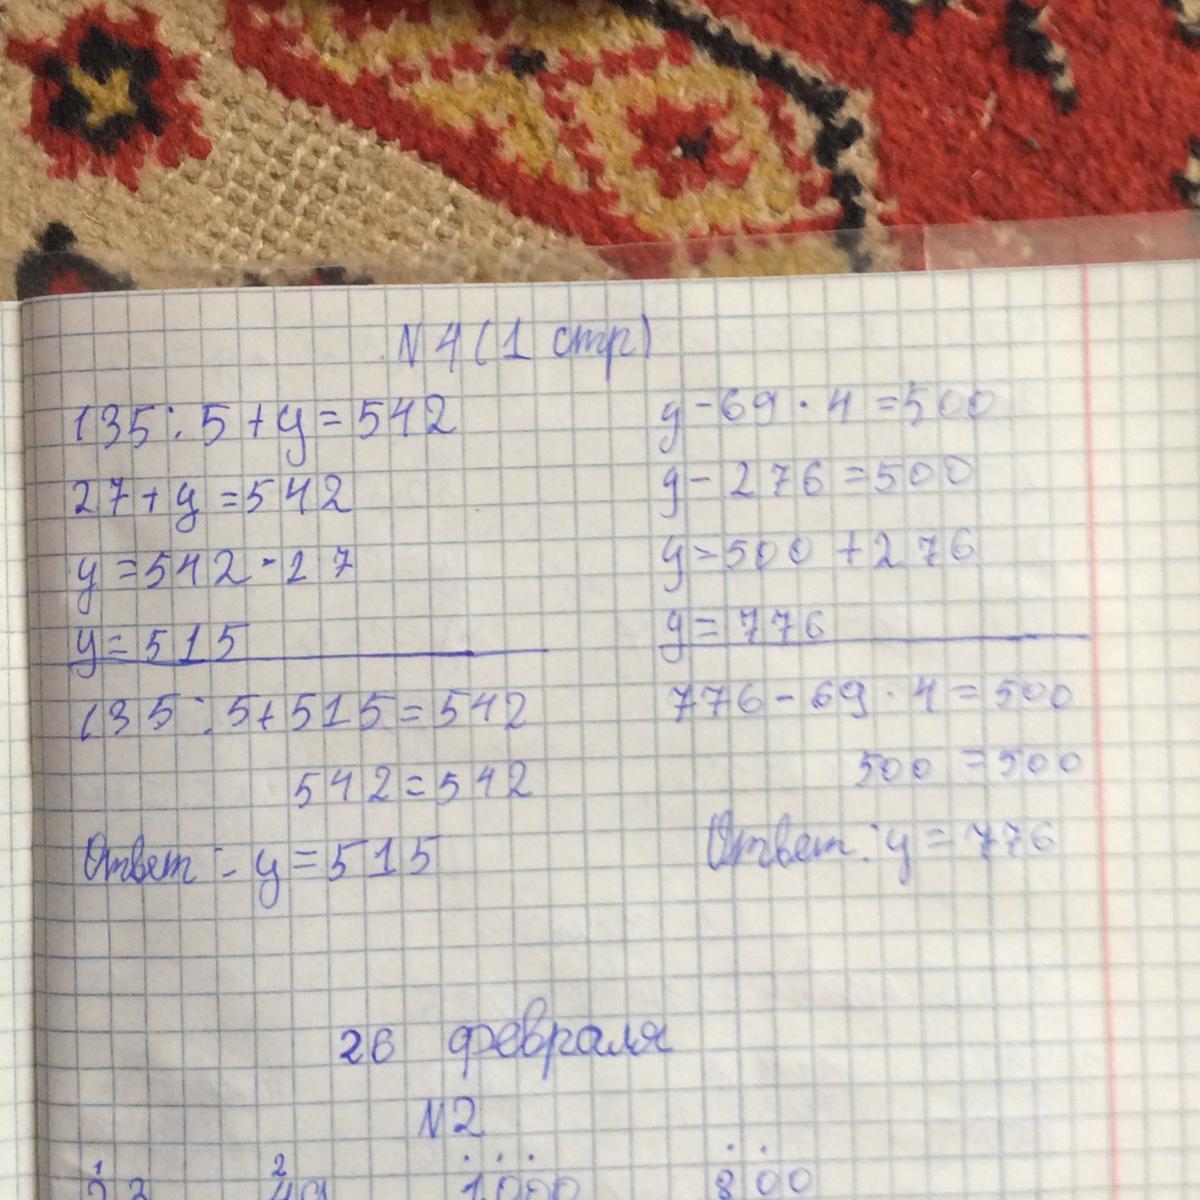 N 4 (1 стр)
135 : 5 + y = 542
27 + y = 542
y = 542 - 27
y = 515
135 : 5 + 515 = 542
542 = 542
Ответ : y = 515
y - 69 · 4 = 500
y - 276 = 500
y = 500 + 276
y = 776
776 - 69 · 4 = 500
500 = 500
Ответ : y = 776
26 февраля
N2
1000 800